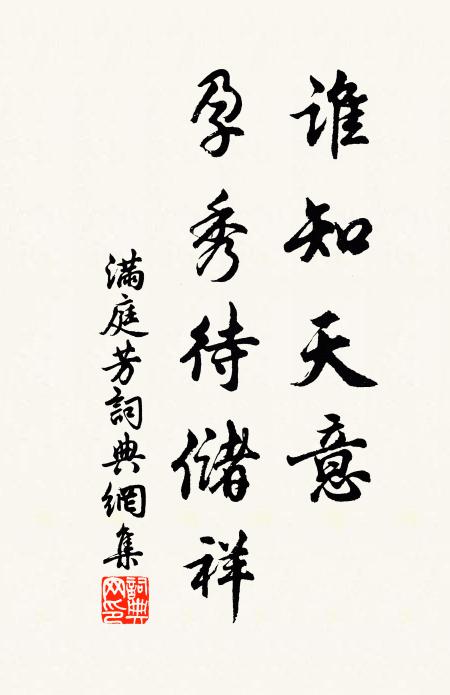 誰知天意
孕秀待儲祥
滿庭芳詞典網集
詞典网印